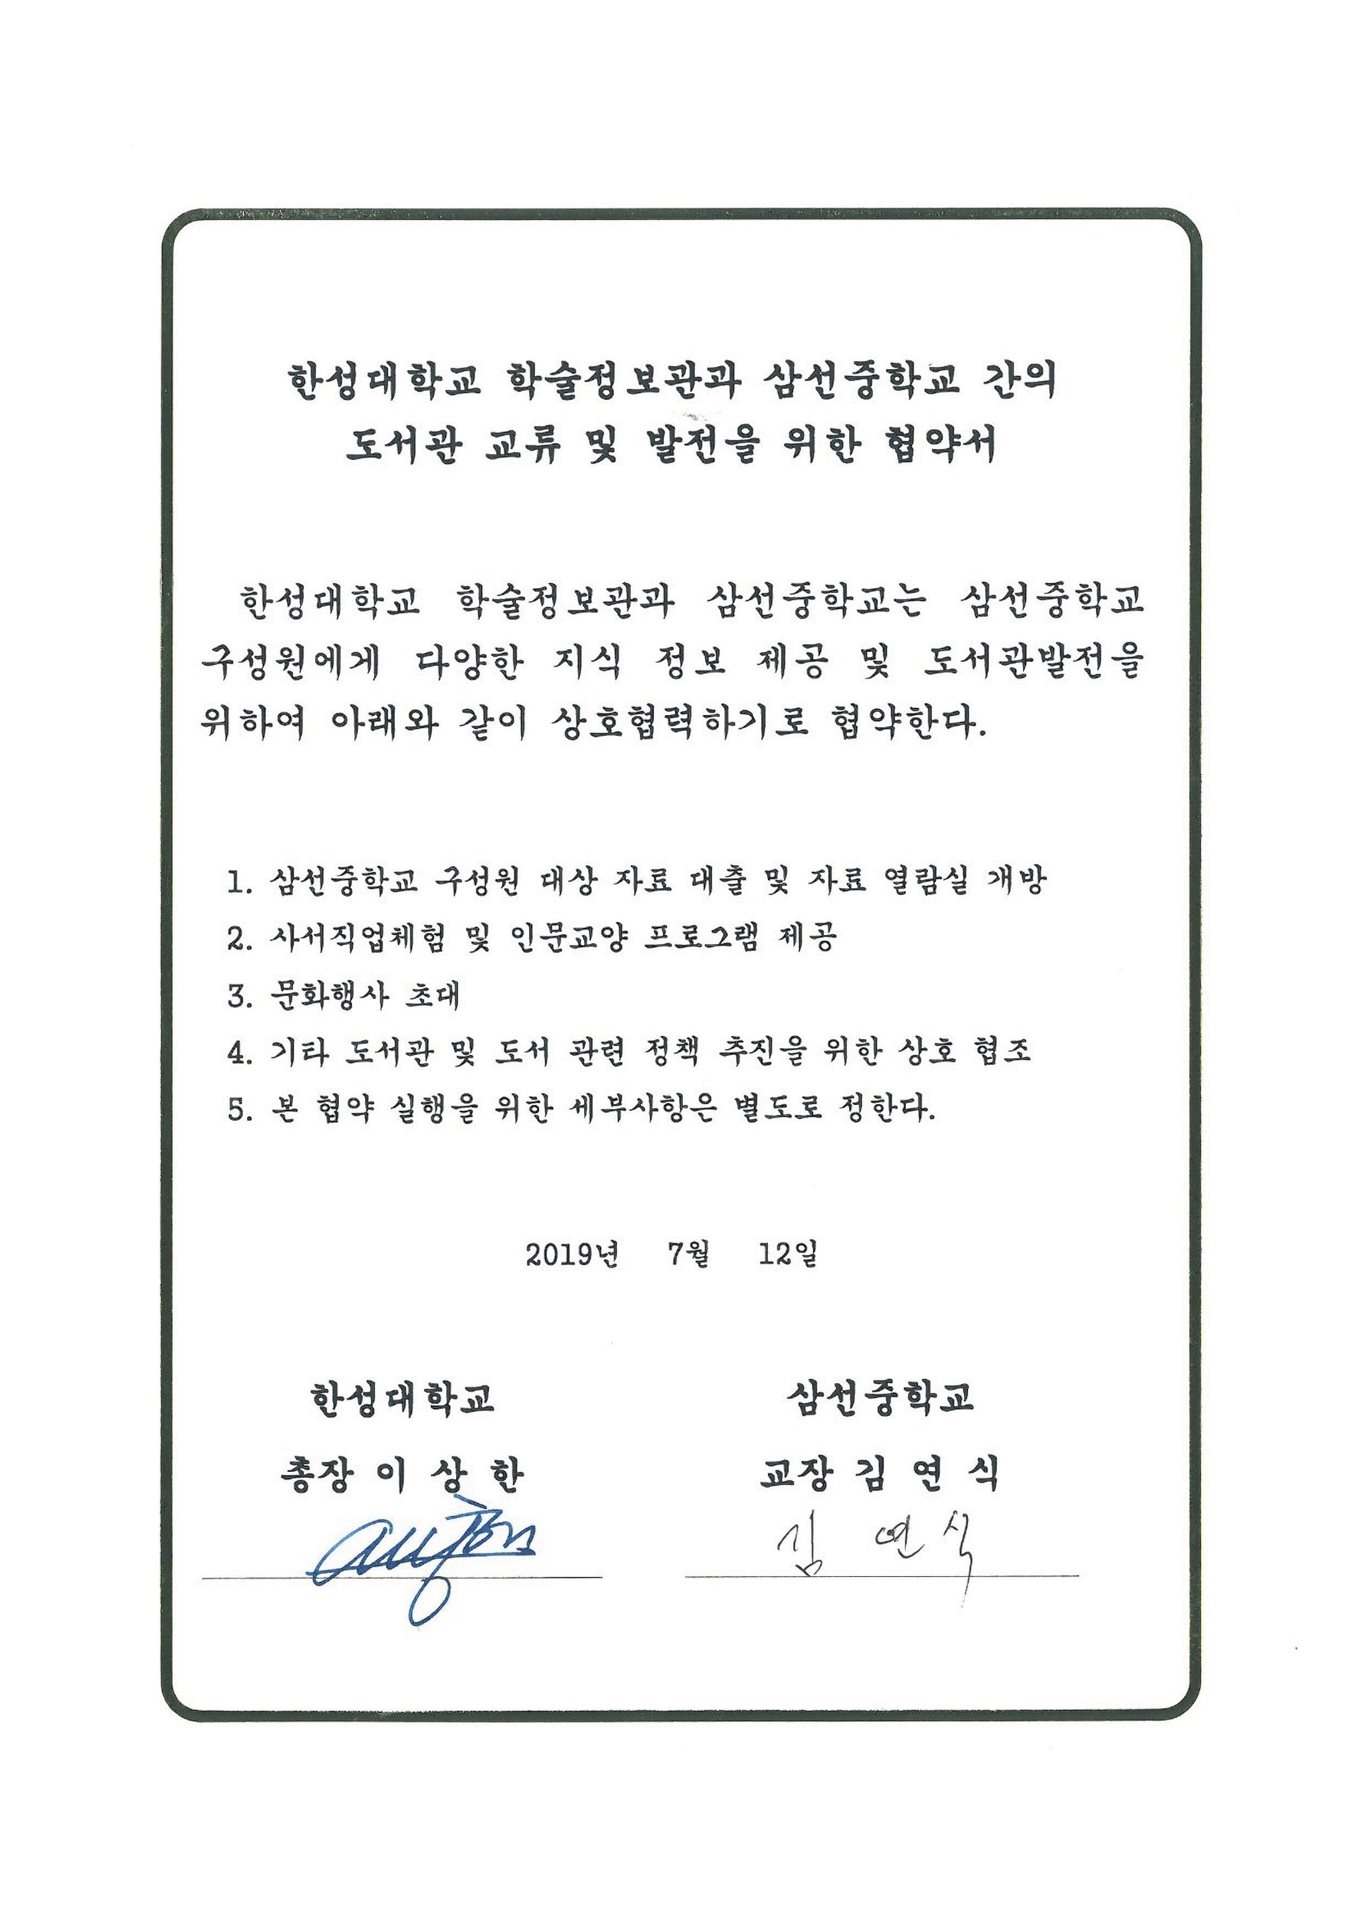 한성대학교 학술정보관과 삼선중학교 간의
도서관 교류 및 발전을 위한 협약서
한성대학교 학술정보관과 삼선중학교는 삼선중학교
구성원에게 다양한 지식 정보 제공 및 도서관발전을
위하여 아래와 같이 상호협력하기로 협약한다.
1. 삼선중학교 구성원 대상 자료 대출 및 자료 열람실 개방
2. 사서직업체험 및 인문교양 프로그램 제공
3. 문화행사 초대
4. 기타 도서관 및 도서 관련 정책 추진을 위한 상호 협조
5. 본 협약 실행을 위한 세부사항은 별도로 정한다.
2019년 7월 12일
한성대학교 삼선중학교
총장 이 상 한 교장 김 연 식
김 연 식